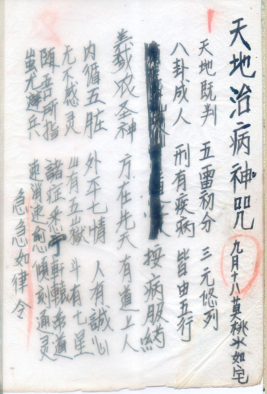 天地治病神咒
九月十八莫桃水如宅
天地既判 五雷初分 三元悠列
八卦成人 刑有疾病 皆由五行
按病服药
義农圣神 方在先天 有道上人
内循五脏 外平七情 人有誠心
无不感灵 出有五岳 斗有七星
随吾所指 諸症悉
蚩尤避兵 速消速愈 通灵
急急如律令